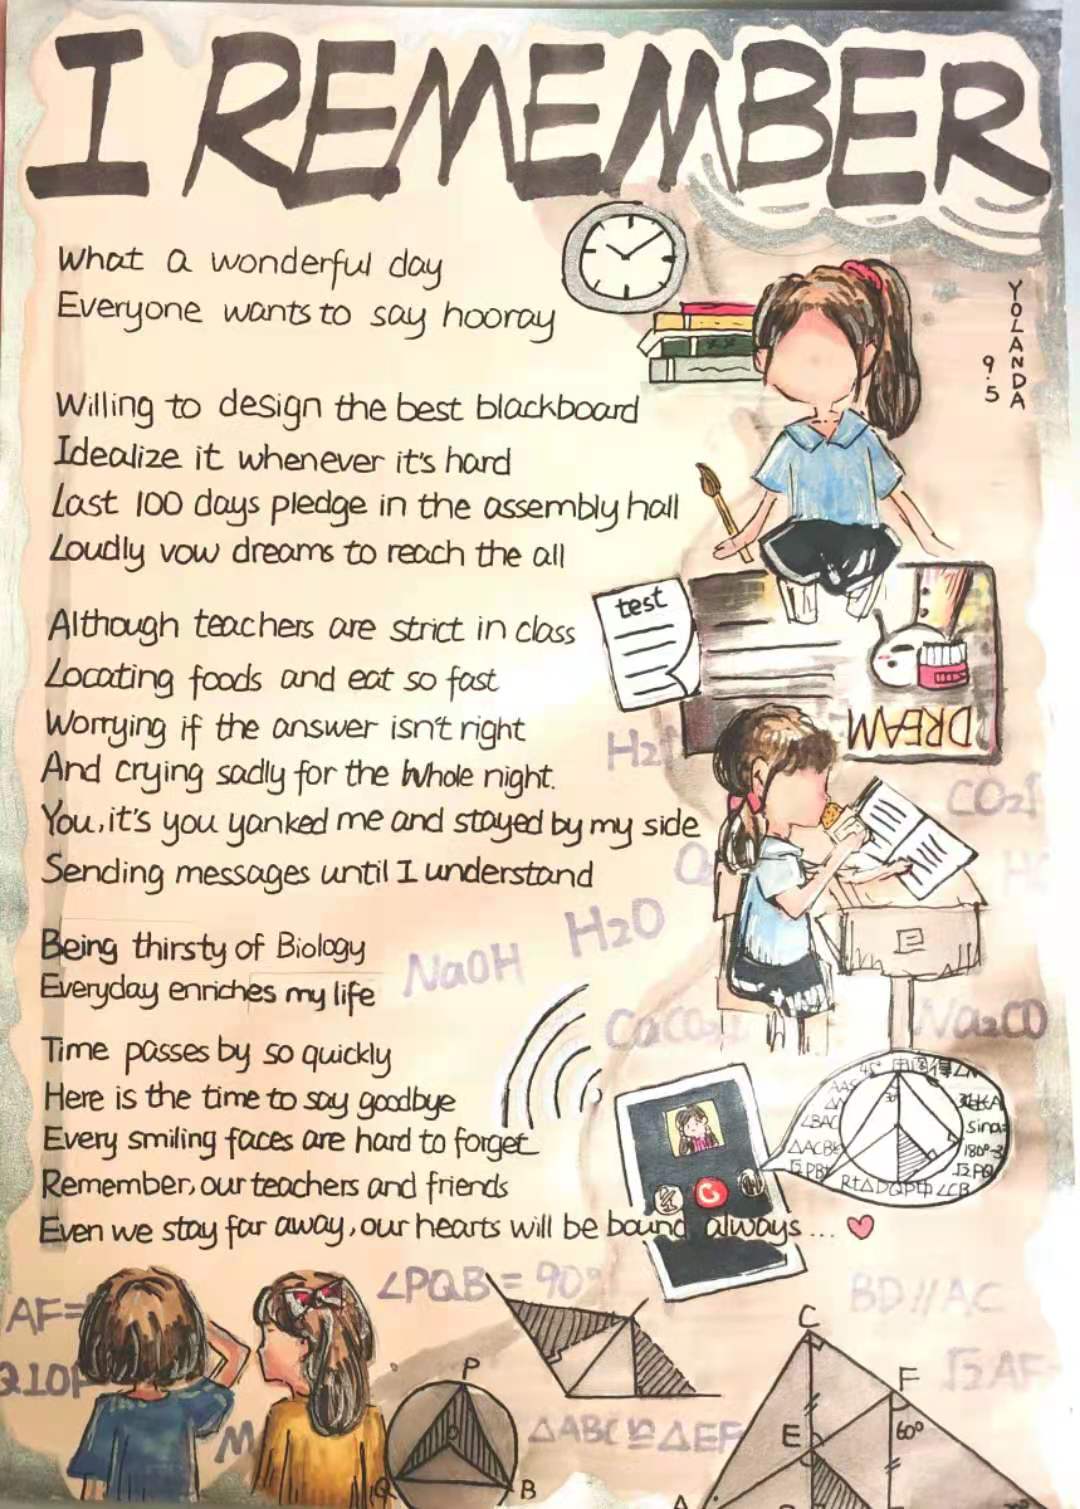 I REMEMBER
YOLANDA
9.5
What a wonderful day
Everyone wants to say hooray
Willing to design the best blackboard
Idealize it whenever it's hard
Last 100 days pledge in the assembly hall
Loudly vow dreams to reach the all
test
Although teachers are strict in class
Locating foods and eat so fast
Worrying if the answer isn't right
And crying sadly for the whole night.
You, it's you yanked me and stayed by my side
Sending messages until I understand
DREAM
CO2↑
Being thirsty of Biology
Everyday enriches my life
NaOH
H2O
Na2CO
Time passes by so quickly
Here is the time to say goodbye
Every smiling faces are hard to forget
Remember, our teachers and friends
Even we stay far away, our hearts will be bound always...
45°
∠BAC
sina=
RtΔDQP中∠CB
∠PQB=90°
BD//AC
AF=
√2AF
M
P
Q
B
ΔABC≌ΔEF
C
F
E
60°
A